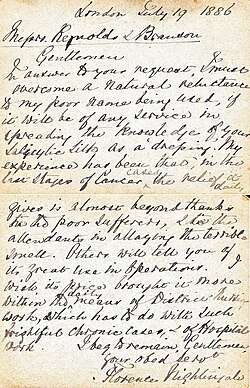 London July 19 1886
Messrs. Reynolds & Branson
Gentlemen
In answer to your request, I must
overcome a natural reluctance
to my poor name being used, if
it will be of any service in
spreading the knowledge of your
Salicylic Silk as a dressing. My
experience has been that, in the
last stages of Cancer cases, the relief it
daily
gives is almost beyond thanks
to the poor Sufferers, & to the
attendants in allaying the terrible
smell. Others will tell you of
its great use in operations. I
wish its price brought it more
within the means of District Nursing
work, which has to do with such
frightful chronic cases, & of Hospital
work
I beg to remain, Gentlemen
your obed servt
Florence Nightingale